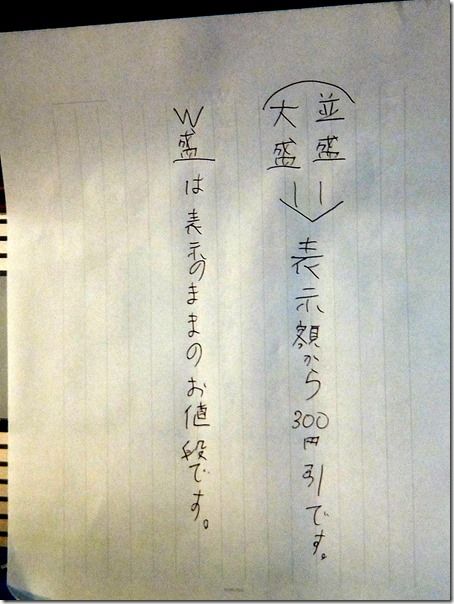 並盛
大盛
⇓ 表示額から300円引です。
W盛は表示のままのお値段です。